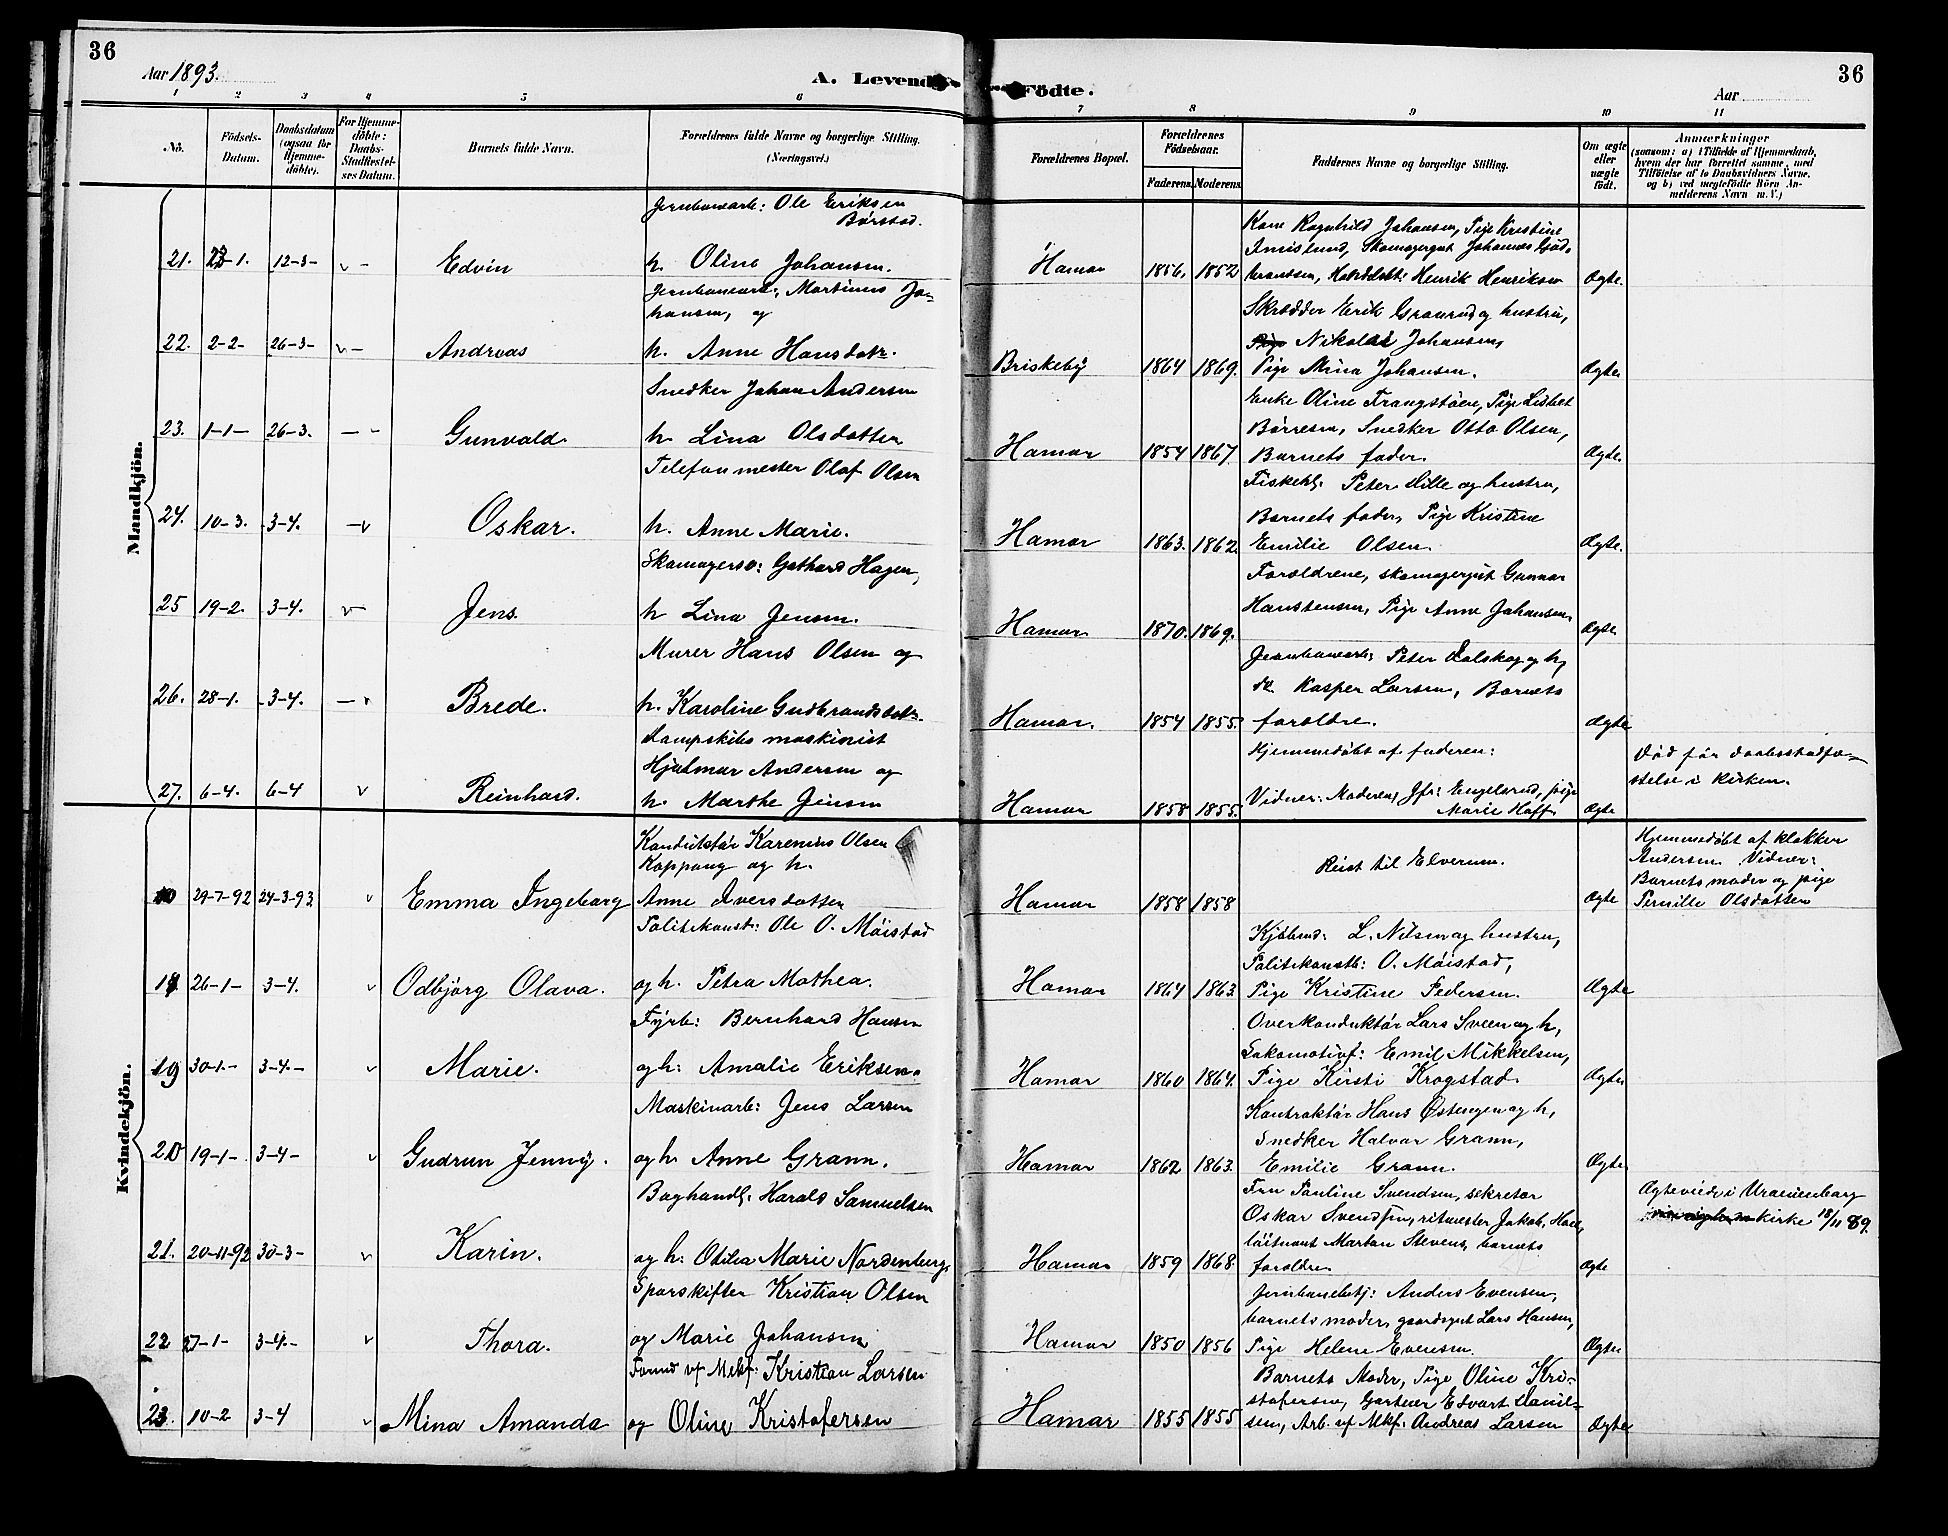 36
36
Aar 1893.
A. Levende
Födte.
Aar
1 2 3 4 5 6 7 8 9 10 11
No.
Födsels-Datum.
Daabsdatum (ogsaa for Hjemme-döbte).
For Hjemme-döbte: Daabs-Stadfæstel-ses Datum.
Barnets fulde Navn.
Forældrenes fulde Navne og borgerlige Stilling.
(Næringsvei.)
Forældrenes Bopæl.
Forældrenes Födselsaar.
Faderens. Moderens.
Faddernes Navne og borgerlige Stilling.
Om ægte eller uægte födt.
Anmærkninger
(saasom: a) i Tilfælde af Hjemmedaab,
hvem der har forrettet samme, med
Tilföielse af to Daabsvidners Navne,
og b) ved uægtefödte Börn An-
melderens Navn m. V.)
Mandkjön.
Jernbanearb: Ole Eriksen
Børstad.
21. 23-1. 12-3- Edvin h. Oline Johansen. Hamar 1856. 1852
Kone Ragnhild Johansen, Pige Kristine
Henrik Henriksen Ægte.
Jernbanearb:, Martinus Jo-
hansen, og
22. 2-2- 26-3- Andreas h. Anne Hansdotr. Briskeby 1864 1869.
Skrædder Erik Graurud og hustru,
Nikolai Johansen,
Pige Mina Johansen. Ægte
Snedker Johan Andersen
23. 1-1- 26-3. Gunvald h. Lina Olsdotter Hamar 1854 1867.
Enke Oline Frangstöen, Pige Lisbet
Börresen, Snedker Otto Olsen,
Barnets fader. Ægte.
Telefonmester Olaf Olsen
24. 10-3. 3-4. Oskar. h. Anne Marie. Hamar 1863. 1862.
Fiskehl: Peter Lille og hustru,
Barnets fader, Pige Kristine
Emilie Olsen. Ægte.
Skomagersv: Gothard Hagen,
25 19-2. 3-4. Jens. h Lina Jensen. Hamar 1870. 1869.
Forældrene, skomagergut Gunnar
Hanstensen, Pige Anne Johansen. Ægte
Murer Hans Olsen og
26. 28-1. 3-4. Brede. h. Karoline Gudbrandsdotr. Hamar. 1854 1855.
Jernbanearb: Peter Dalskog og h,
do. Kasper Larsen, Barnets
forældre. Ægte
Dampskibsmaskinist
Hjalmar Andersen og
27. 6-4. 6-4 Reinhard. h. Marthe Jensen Hamar 1858 1855.
Hjemmedøbt af faderen:
Vidner: Moderen, Jfr: Engelsrud, pige
Marie Hoff. Ægte
Død før daabsstadfæ-
stelse i kirken.
Kvindekjön.
Konduktør Karenius Olsen
Koppang og h.
29-7-92 24-3-93 Emma Ingeborg Anne Iversdotter Hamar 1858 1858
Reist til Elverum. Ægte
Hjemmedøbt af klokker
Andersen. Vidner:
Barnets moder og pige
Pernille Olsdotter
Politikonst: Ole O. Möistad
26-1- 3-4. Odbjörg Olava. og h. Petra Mathea. Hamar 1864 1863
Kjöbmd: L. Nilsen og hustru,
Politikonstb: O. Möistad,
Pige Kristine Pedersen. Ægte
Fyrb: Bernhard Hansen
19 30-1.- 3-4.- Marie. og h: Amalie Eriksen. Hamar 1860 1864.
Overkonduktör Lars Sveen og h,
Lokomotivf: Emil Mikkelsen,
Pige Kirsti Krogstad. Ægte
Maskinarb: Jens Larsen
20 19-1- 3-4- Gudrun Jenny. og h. Anne Grann. Hamar 1862 1863.
Kontraktör Hans Østengen og h,
Snedker Halvor Grann,
Emilie Grann. Ægte
Boghandl: Harald Samuelsen
21. 20-11-92 30-3- Karin. og h: Otilia Marie Nordenborg. Hamar 1859 1868.
Fru Pauline Svendsen, sekretær
Oskar Svendsen, ritmester Jakob,
löitnant Morten Stevens, barnets
forældre Ægte
Ægteviede i Uranienborg
kirke 18/11 89.
Sporskifter Kristian Olsen
22 3-4.- Thora. og Marie Johansen Hamar 1850 1856
Jernbanebetj: Anders Evensen,
barnets moder, gaardsgut Lars Hansen,
Pige Helene Evensen. Ægte
Formd vf Mekf: Kristian Larsen
23. 10-2 3-4 Mina Amanda og Oline Kristofersen Hamar 1855 1855
Barnets Moder, Pige Oline Kri-
stofersen, Gartner Edvart Daniel-
sen, Arb. vf Mkf: Andreas Larsen Ægte